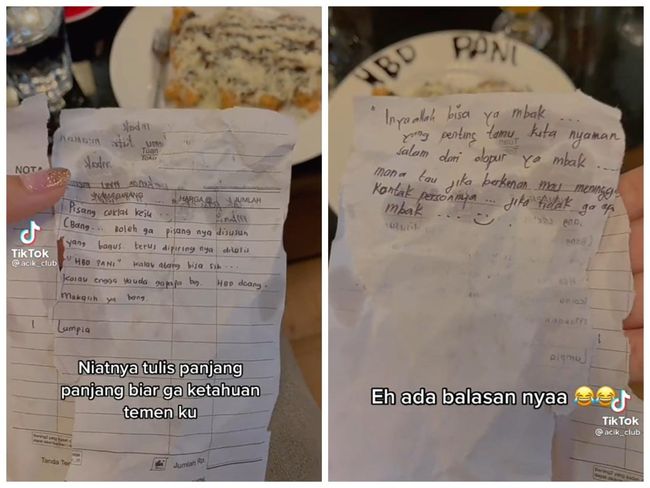 NOTA
Tuan
Toko
NAMA BARANG HARGA JUMLAH
Pisang coklat keju
(Bang... boleh ga pisang nya disusun
yang bagus terus dipiring nya ditulis
"HBD PANI" kalau abang bisa sih...
kalau engga yauda gapapa bg. HBD doang.
Makasih ya bang
1 Lumpia
TikTok
@acik_club
Niatnya tulis panjang
panjang biar ga ketahuan
temen ku
Tanda Ter
Jumlah Rp.
HBD PANI
* Inyaallah bisa ya mbak ...
yang penting tamu kita nyaman
salam dari dapur ya mbak ...
mana tau jika berkenan mau
kontak personnya ... jika tidak ga
mbak ....
TikTok
Eh ada balasan nyaa 😂😂
TikTok
@acik_club